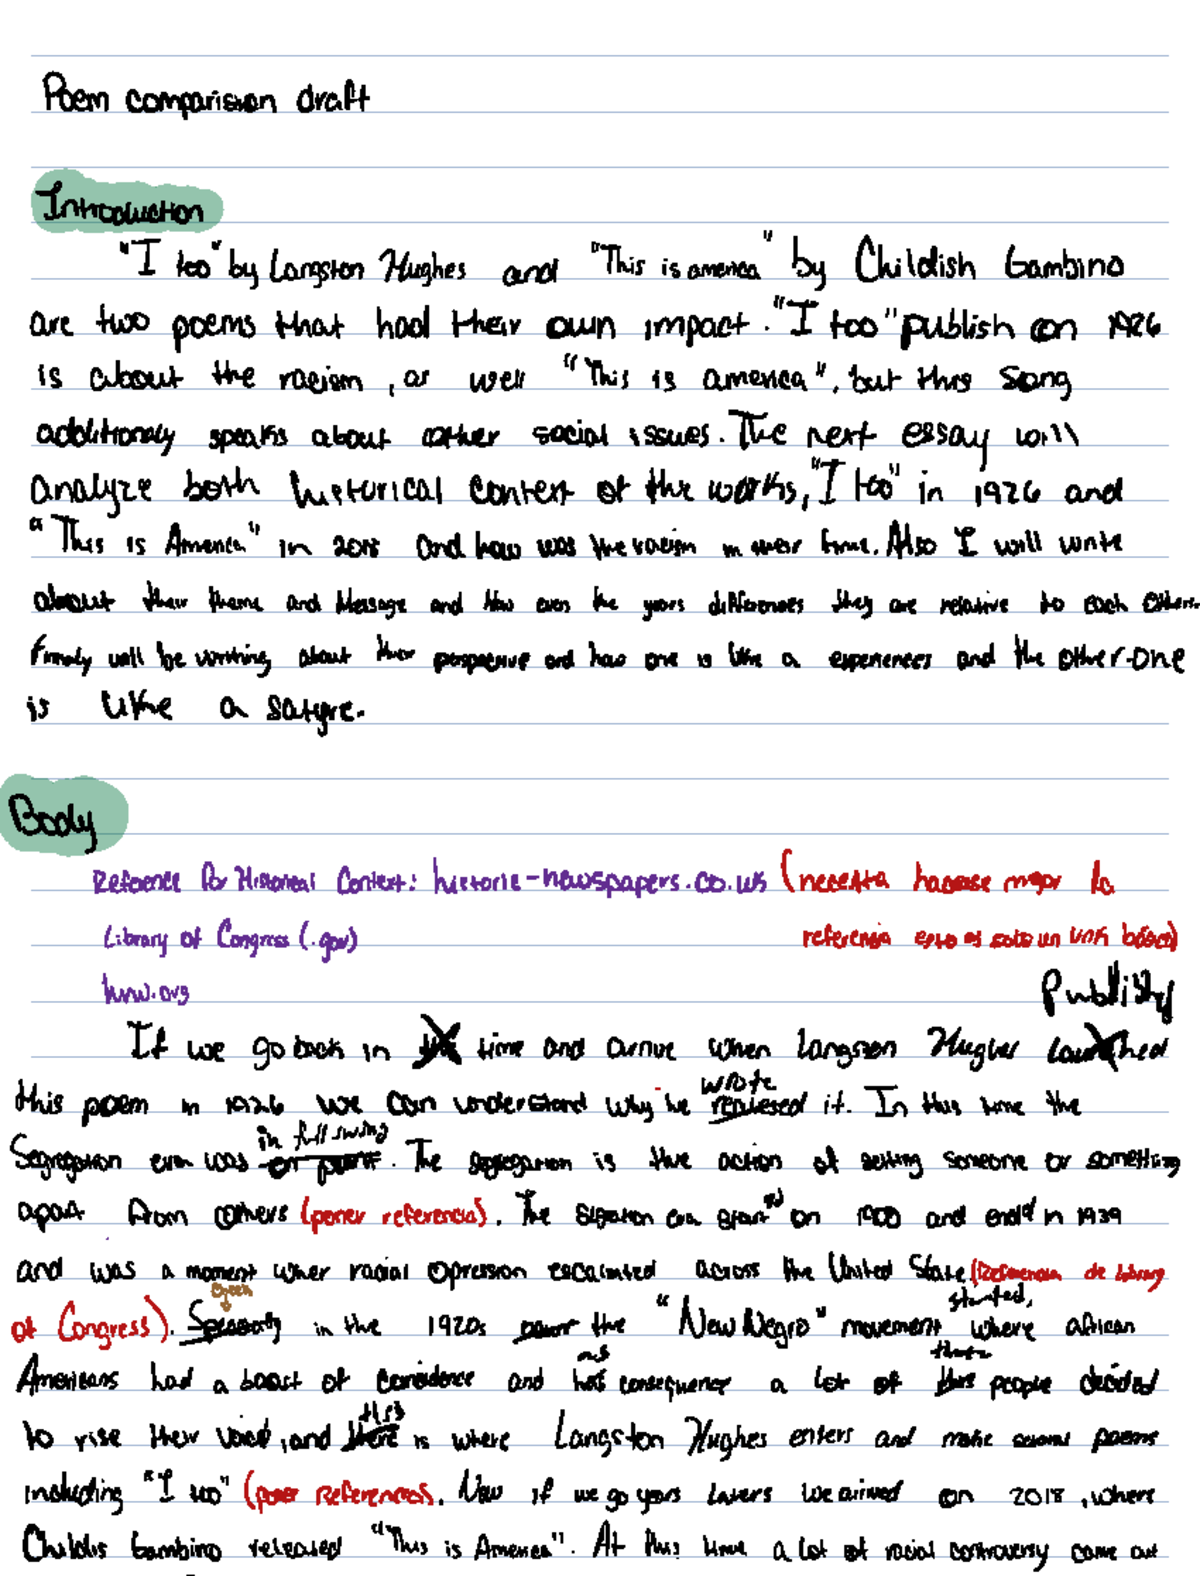 Poem comparision draft
Introduction
"I too" by Langston Hughes and "This is america" by Childish Gambino
are two poems that had their own impact. "I too" publish on 1926
is about the racism, as well "This is america", but this song
additionaly speaks about other social issues. The next essay will
analyze both historical context of the works, "I too" in 1926 and
"This is America" in 2018 and how was the racism in their time. Also I will write
about their theme and Message and how even the years differences they are relative to each others.
Finally will be writhing about their perspective and how one is like a experiences and the other one
is like a satyre.
Body
Reference for Historical Context: historic-newspapers.co.uk (necesita hacerse mejor la
Library of Congress (.gov) referencia esto es solo un link básico)
hrw.org
publish
If we go back in time and arrive when Langston Hugher launched
wrote
this poem in 1926 we can understand why he realesed it. In this time the
in full swing
Segregation era was on point. The segregation is the action of setting someone or something
apart from others (poner referencia). The era started on 1900 and ended in 1939
and was a moment wher racial opression escalated across the United State (Referencia de library
started,
of Congress). Specially in the 1920s the "New Negro" movement where african
as these
Americans had a boost of confidence and has consequence a lot of this people decided
this
to rise their voice, and there is where Langston Hughes enters and make several poems
including "I too" (poner Referencias). Now if we go years laters we arrived on 2018, where
Childis Gambino released "This is America". At this time a lot of racial controversy came out